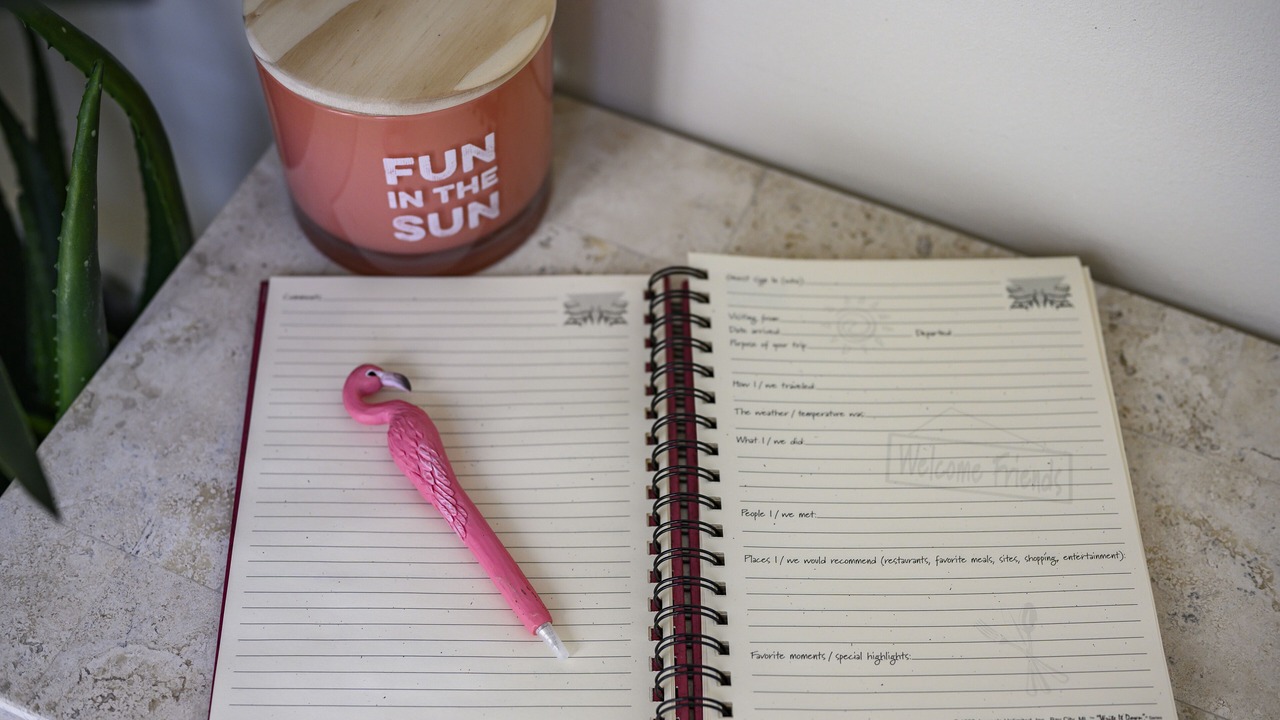 FUN
IN THE
SUN
Comments
Guest sign in (note)
Visiting from
Date arrived Departed
Purpose of your trip
How I / we traveled
The weather / temperature was:
What I / we did:
Welcome Friends
People I / we met:
Places I / we would recommend (restaurants, favorite meals, sites, shopping, entertainment):
Favorite moments / special highlights:
"Write It Down"